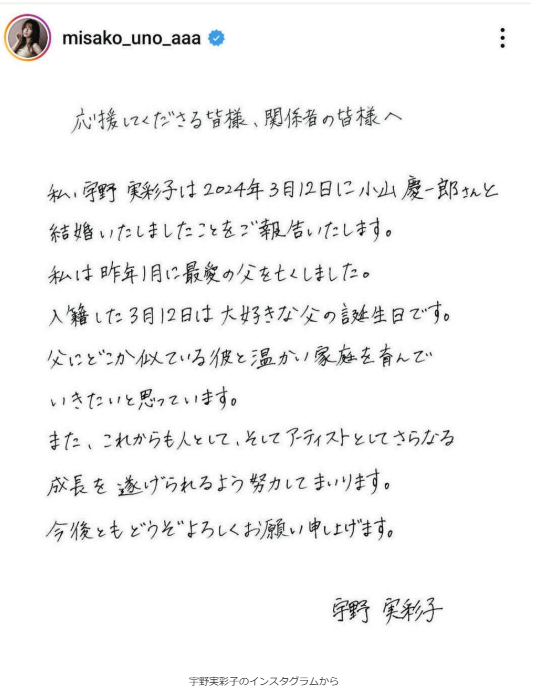 misako_uno_aaa
応援してくださる皆様、関係者の皆様へ
私、宇野 実彩子は2024年3月12日に小山 慶一郎さんと
結婚いたしましたことをご報告いたします。
私は昨年1月に最愛の父を亡くしました。
入籍した3月12日は大好きな父の誕生日です。
父にどこか似ている彼と温かい家庭を育んで
いきたいと思っています。
また、これからも人として、そしてアーティストとしてさらなる
成長を遂げられるよう努力してまいります。
今後ともどうぞよろしくお願い申し上げます。
宇野 実彩子
宇野実彩子のインスタグラムから